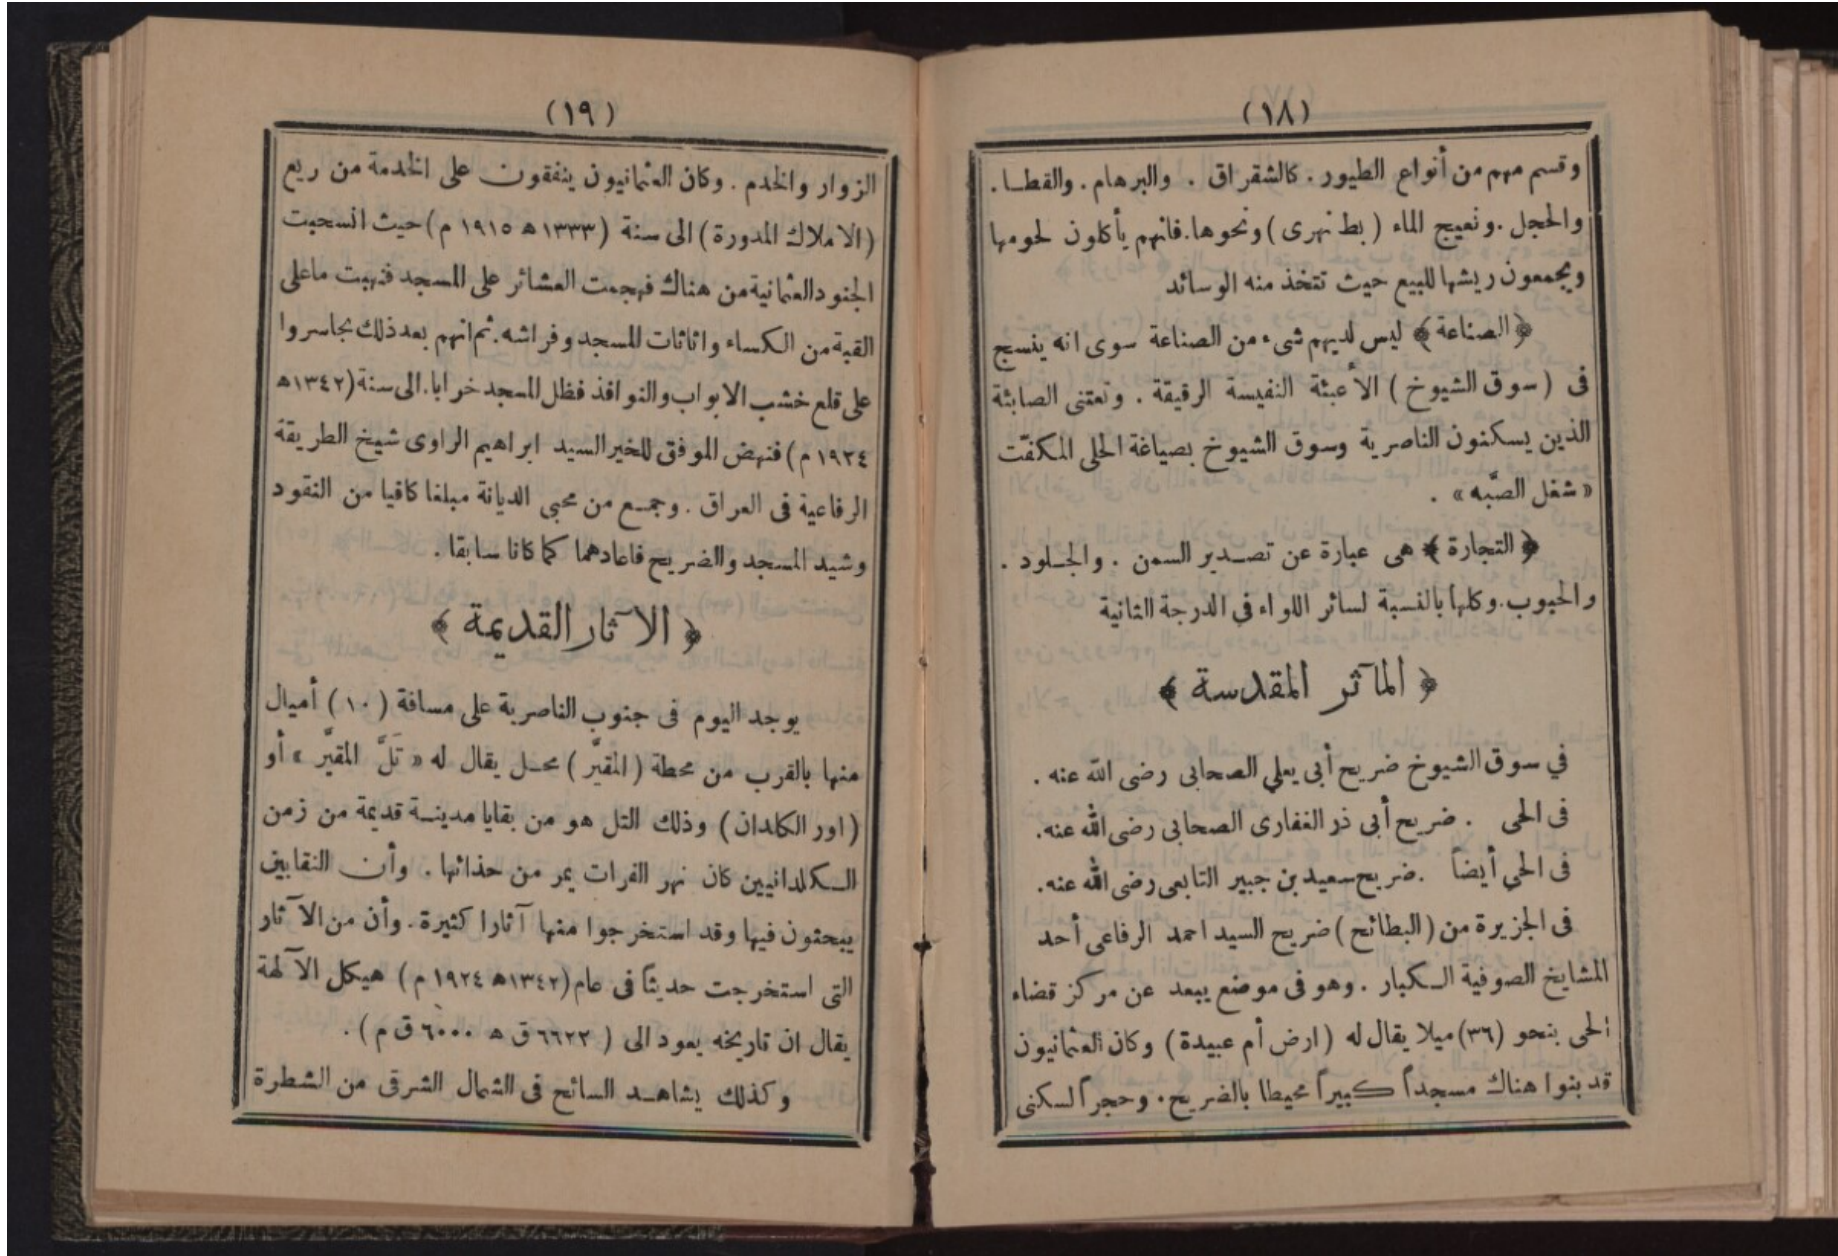 (١٨)
وقسم مهم من أنواع الطيور. كالشقراق . والبرهام. والقطـا.
والحجل. ونعيج الماء (بط نهرى) ونحوها. فانهم يأكلون لحومها
ويجمعون ريشها للبيع حيث تتخذ منه الوسائد
﴿الصناعة﴾ ليس لديهم شىء من الصناعة سوى انه ينسج
فى (سوق الشيوخ) الأعبئة النفيسة الرقيقة . وتعتنى الصابئة
الذين يسكنون الناصرية وسوق الشيوخ بصياغة الحلى المكفّت
«شغل الصّبه» .
﴿التجارة﴾ هى عبارة عن تصـدير السمن . والجـلود .
والحبوب. وكلها بالنسبة لسائر اللواء في الدرجة الثانية
﴿المآثر المقدسة﴾
في سوق الشيوخ ضريح أبى يعلي الصحابى رضى الله عنه .
فى الحى . ضريح أبى ذر الغفارى الصحابى رضى الله عنه.
فى الحي أيضاً . ضريح سعيد بن جبير التابعى رضى الله عنه.
فى الجزيرة من (البطائح) ضريح السيد احمد الرفاعى أحد
المشايخ الصوفية الـكبار . وهو فى موضع يبعد عن مركز قضاء
الحى بنحو (٣٦) ميلا يقال له (ارض أم عبيدة) وكان العثمانيون
قد بنوا هناك مسجداً كبيراً محيطا بالضريح. وحجراً لسكنى
(١٩)
الزوار والخدم . وكان العثمانيون ينفقون على الخدمة من ريع
(الاملاك المدورة) الى سنة (١٣٣٣ه ١٩١٥ م) حيث انسحبت
الجنود العثمانية من هناك فهجمت العشائر على المسجد فنهبت ماعلى
القبة من الكساء واثاثات المسجد وفراشه. ثم انهم بعد ذلك تجاسروا
على قلع خشب الابواب والنوافذ فظل المسجد خرابا. الى سنة (١٣٤٢ه
١٩٢٤ م) فنهض الموفق للخير السيد ابراهيم الراوى شيخ الطريقة
الرفاعية فى العراق . وجمـع من محبى الديانة مبلغا كافيا من النقود
وشيد المسجد والضريح فاعادهما كما كانا سابقا .
﴿الآثار القديمة﴾
يوجد اليوم فى جنوب الناصرية على مسافة (١٠) أميال
منها بالقرب من محطة (المقيَّر) محـل يقال له «تَلَّ المقيَّر» أو
(اور الكلدان) وذلك التل هو من بقايا مدينـة قديمة من زمن
الـكلدانيين كان نهر الفرات يمر من حذائها . وأن النقابين
يبحثون فيها وقد استخرجوا منها آثارا كثيرة. وأن من الآثار
التى استخرجت حديثاً فى عام (١٣٤٢ه ١٩٢٤ م) هيكل الآلهة
يقال ان تاريخه يعود الى (٦٦٢٣ ق ه ٦٠٠٠ ق م).
وكذلك يشاهـد السائح فى الشمال الشرقى من الشطرة